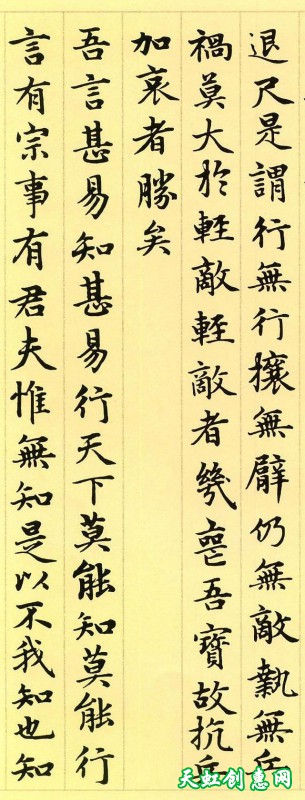 退尺是謂行無行攘無臂仍無敵執無兵
禍莫大於輕敵輕敵者幾喪吾寶故抗兵
加哀者勝矣
吾言甚易知甚易行天下莫能知莫能行
言有宗事有君夫惟無知是以不我知也知
天虹创惠网